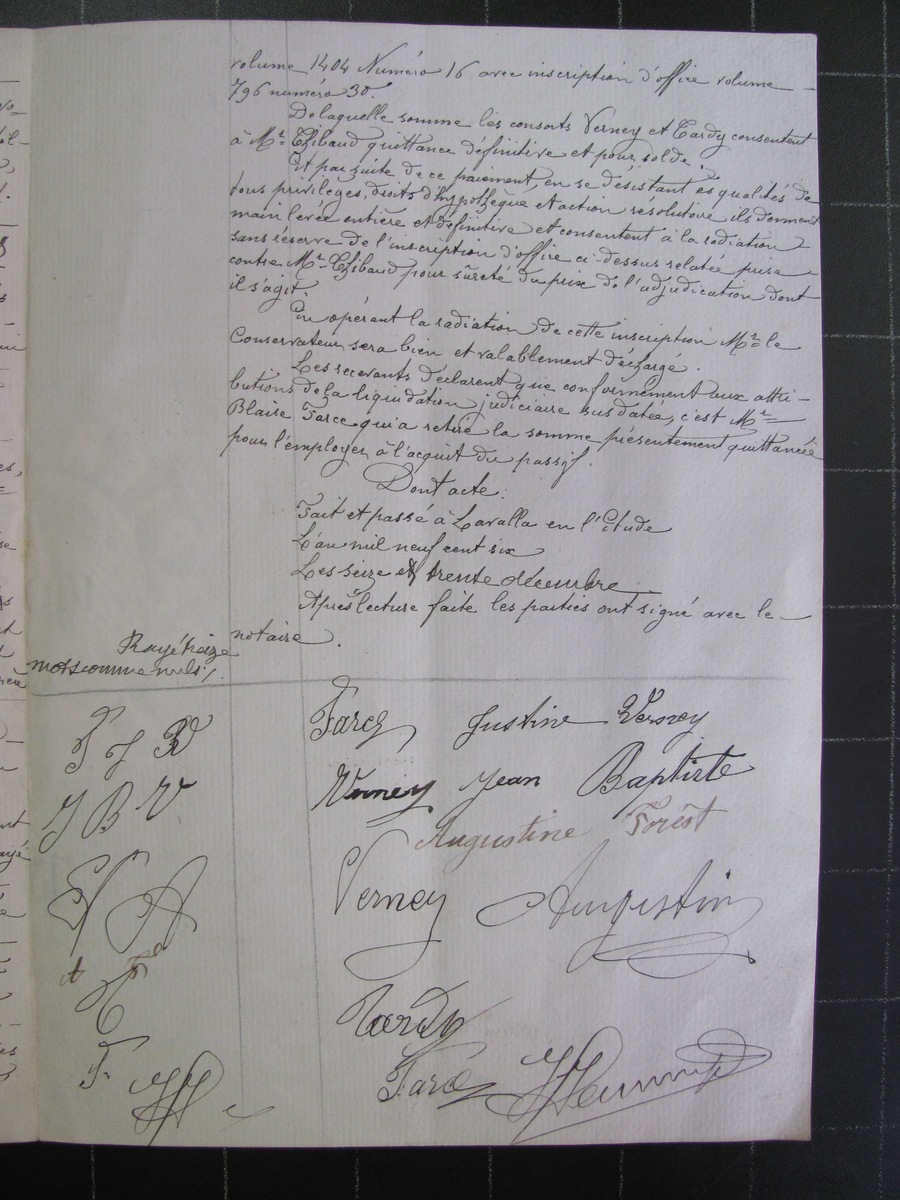 volume 1404 Numéro 16 avec inscription d'office volume
796 numéro 30.
De laquelle somme les consorts Verney et Tardy consentent
à Mr. Thibaud quittance définitive et pour solde.
Et par suite de ce paiement, en se désistant es qualités de
tous privilèges, droits d'hypothèque et action résolutoire ils donnent
main levée entière et définitive et consentent à la radiation
sans réserve de l'inscription d'office ci-dessus relatée prise
contre Mr. Thibaud pour sûreté du prix de l'adjudication dont
il s'agit.
En opérant la radiation de cette inscription Mr. le
Conservateur sera bien et valablement déchargé.
Les recevants déclarent que conformément aux attri-
butions de la liquidation judiciaire sus datée, c'est Mr.
Blaise Farce qui a retiré la somme présentement quittancée
pour l'employer à l'acquit du passif.
Dont acte.
Fait et passé à Lavalla en l'Etude
L'an mil neuf cent six
Les seize et trente décembre
Après lecture faite les parties ont signé avec le
notaire.
Rayé treize
mots comme nuls
Farce Justine Verney
J B V
Verney Jean Baptiste
Augustine Forêt
V A
Verney Augustin
Tardy
Farce